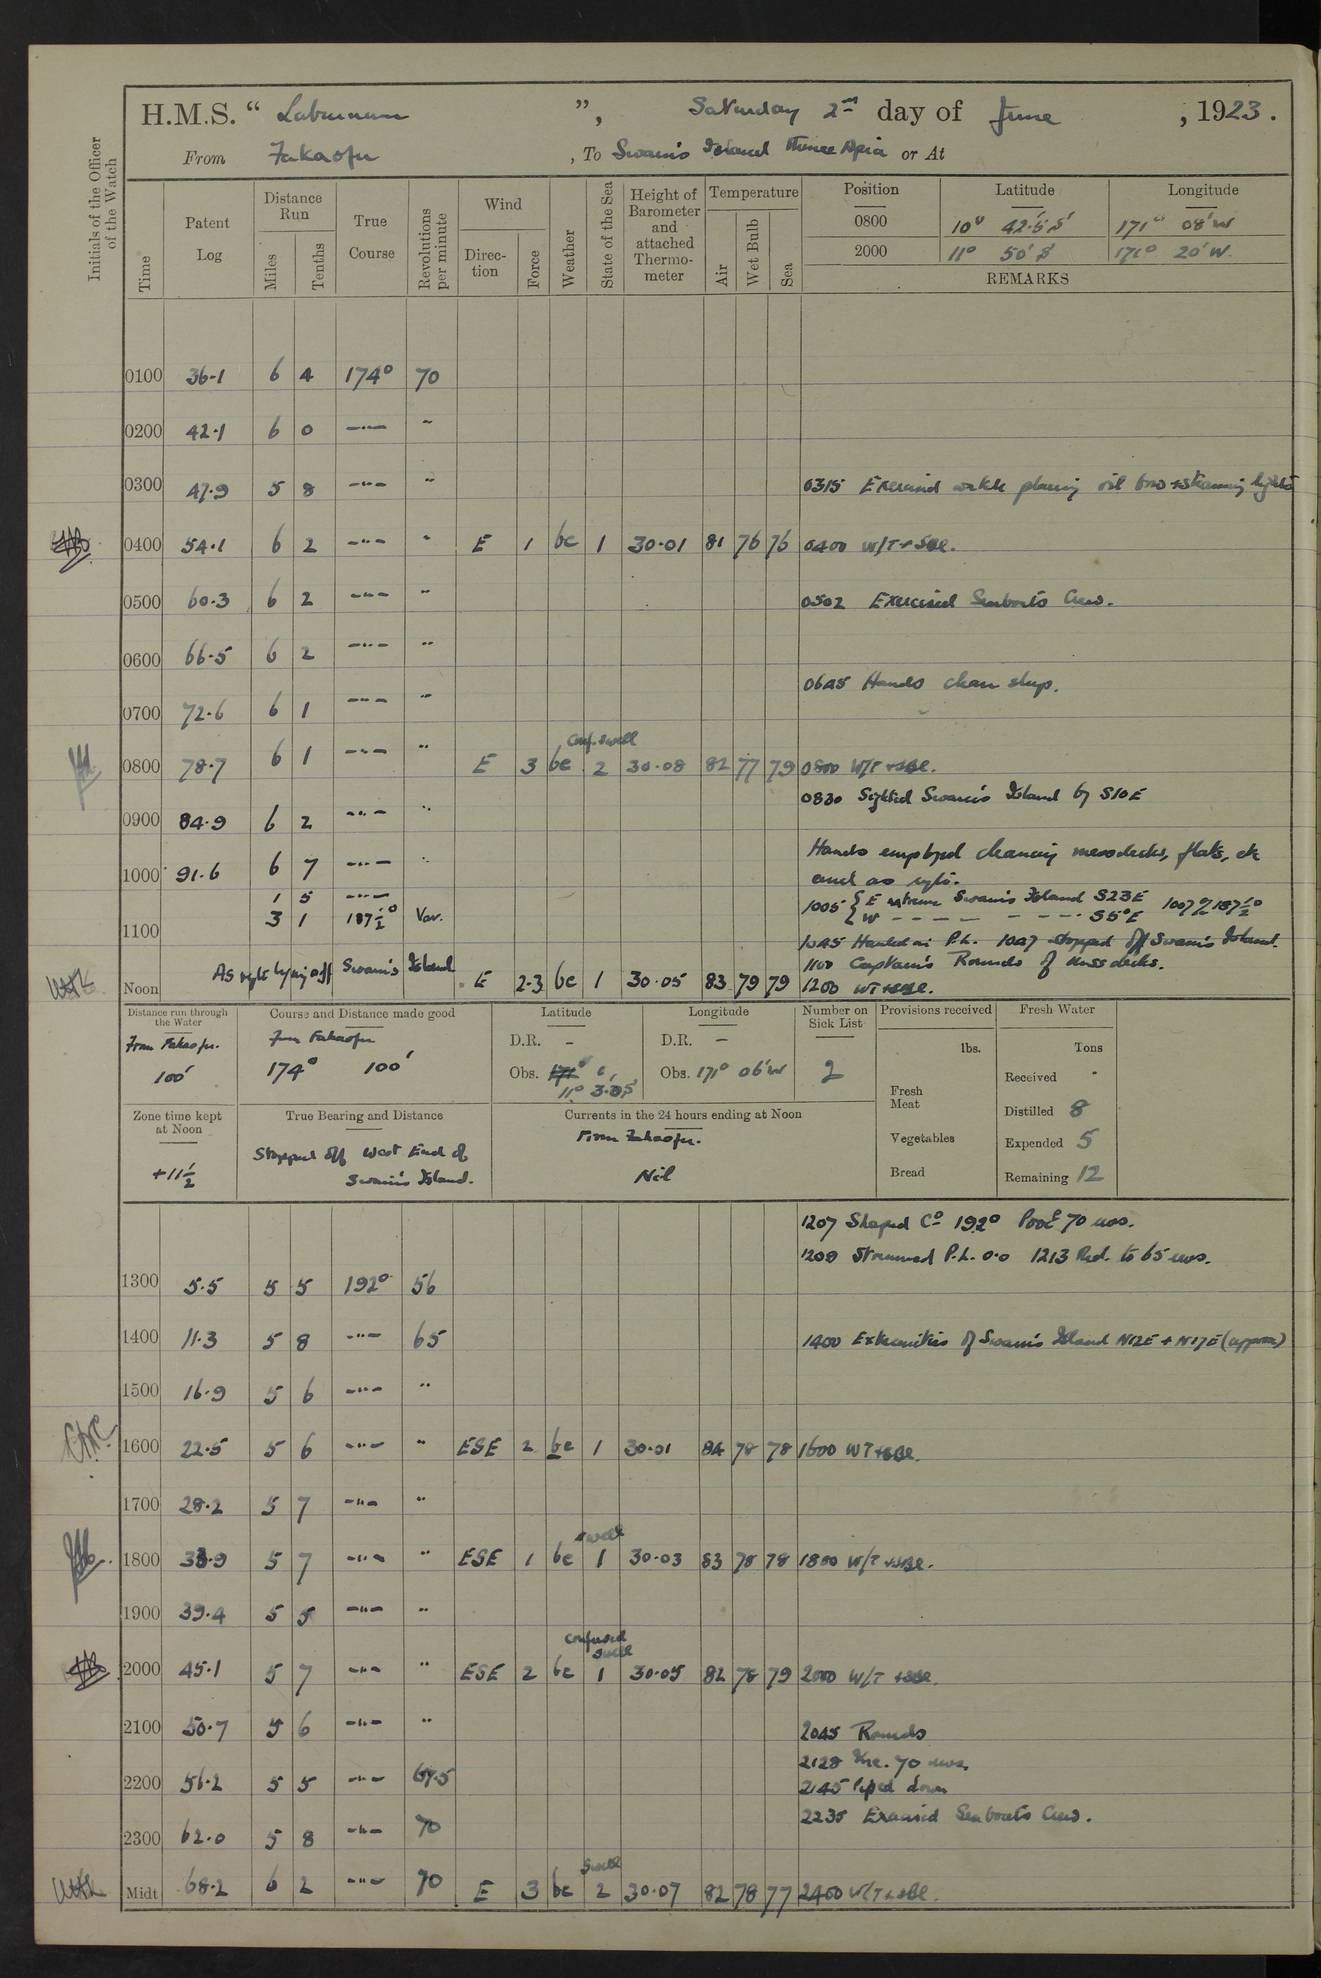 H.M.S. “ Laburnum ”, Saturday 2nd day of June, 1923.
From Fakaofu, To Swains Island thence Apia or At
Initials of the Officer of the Watch
Time Patent Log Distance Run Miles Tenths True Course Revolutions per minute Wind Direction Force Weather State of the Sea Height of Barometer and attached Thermometer Temperature Air Wet Bulb Sea Position Latitude Longitude
0800 10° 42·5'S 171° 08'W
2000 11° 50'S 171° 20'W
REMARKS
0100 36·1 6 4 174° 70
0200 42·1 6 0 -"- "
0300 47·9 5 8 -"- " 0315 Exercised watch placing oil bow & steaming lights
0400 54·1 6 2 -"- " E 1 bc 1 30·01 81 76 76 0400 W/T + SBL.
0500 60·3 6 2 -"- " 0502 Exercised Seaboats Crew.
0600 66·5 6 2 -"- "
0645 Hands clean ship.
0700 72·6 6 1 -"- "
Conf. swell
0800 78·7 6 1 -"- " E 3 bc 2 30·08 82 77 79 0800 W/T + SBL.
0830 Sighted Swains Island by S10E
0900 84·9 6 2 -"- "
Hands employed cleaning messdecks, flats, etc
1000 91·6 6 7 -"- " and as reqte.
1 5 -"-
1005 { E extreme Swains Island S23E 1007 a/c 187½°
W - - - - - - - S5°E
3 1 187½° Var.
1100
1045 Hauled in P.L. 1047 stopped off Swains Island.
1100 Captain's Rounds of Mess decks.
Noon As reqte lying off Swains Island E 2-3 bc 1 30·05 83 79 79 1200 WT + SBL.
Distance run through the Water Course and Distance made good Latitude Longitude Number on Sick List Provisions received Fresh Water
From Fakaofu. From Fakaofu D.R. - D.R. - lbs. Tons
100' 174° 100' Obs. 11° 3·5'S Obs. 171° 06'W 2 Fresh Meat Received -
Distilled 8
Zone time kept at Noon True Bearing and Distance Currents in the 24 hours ending at Noon
From Fakaofu.
+11½ Stopped off West End of Swains Island. Nil
Vegetables Expended 5
Bread Remaining 12
1207 Shaped Co 192° Procd 70 revs.
1208 Streamed P.L. 0·0 1213 Red. to 65 revs.
1300 5·5 5 5 192° 56
1400 11·3 5 8 -"- 65 1400 Extremities of Swains Island N12E + N17E (approx)
1500 16·9 5 6 -"- "
1600 22·5 5 6 -"- " ESE 2 bc 1 30·01 84 78 78 1600 WT + SBL.
1700 28·2 5 7 -"- "
swell
1800 33·9 5 7 -"- " ESE 1 bc 1 30·03 83 78 78 1800 W/T + SBL.
1900 39·4 5 5 -"- "
confused swell
2000 45·1 5 7 -"- " ESE 2 bc 1 30·05 82 78 79 2000 W/T + SBL.
2100 50·7 5 6 -"- " 2045 Rounds
2128 Inc. 70 revs.
2200 56·2 5 5 -"- 67·5 2145 Piped down
2235 Exercised Seaboats Crew.
2300 62·0 5 8 -"- 70
Swell
Midt 68·2 6 2 -"- 70 E 3 bc 2 30·07 82 78 77 2400 W/T + SBL.